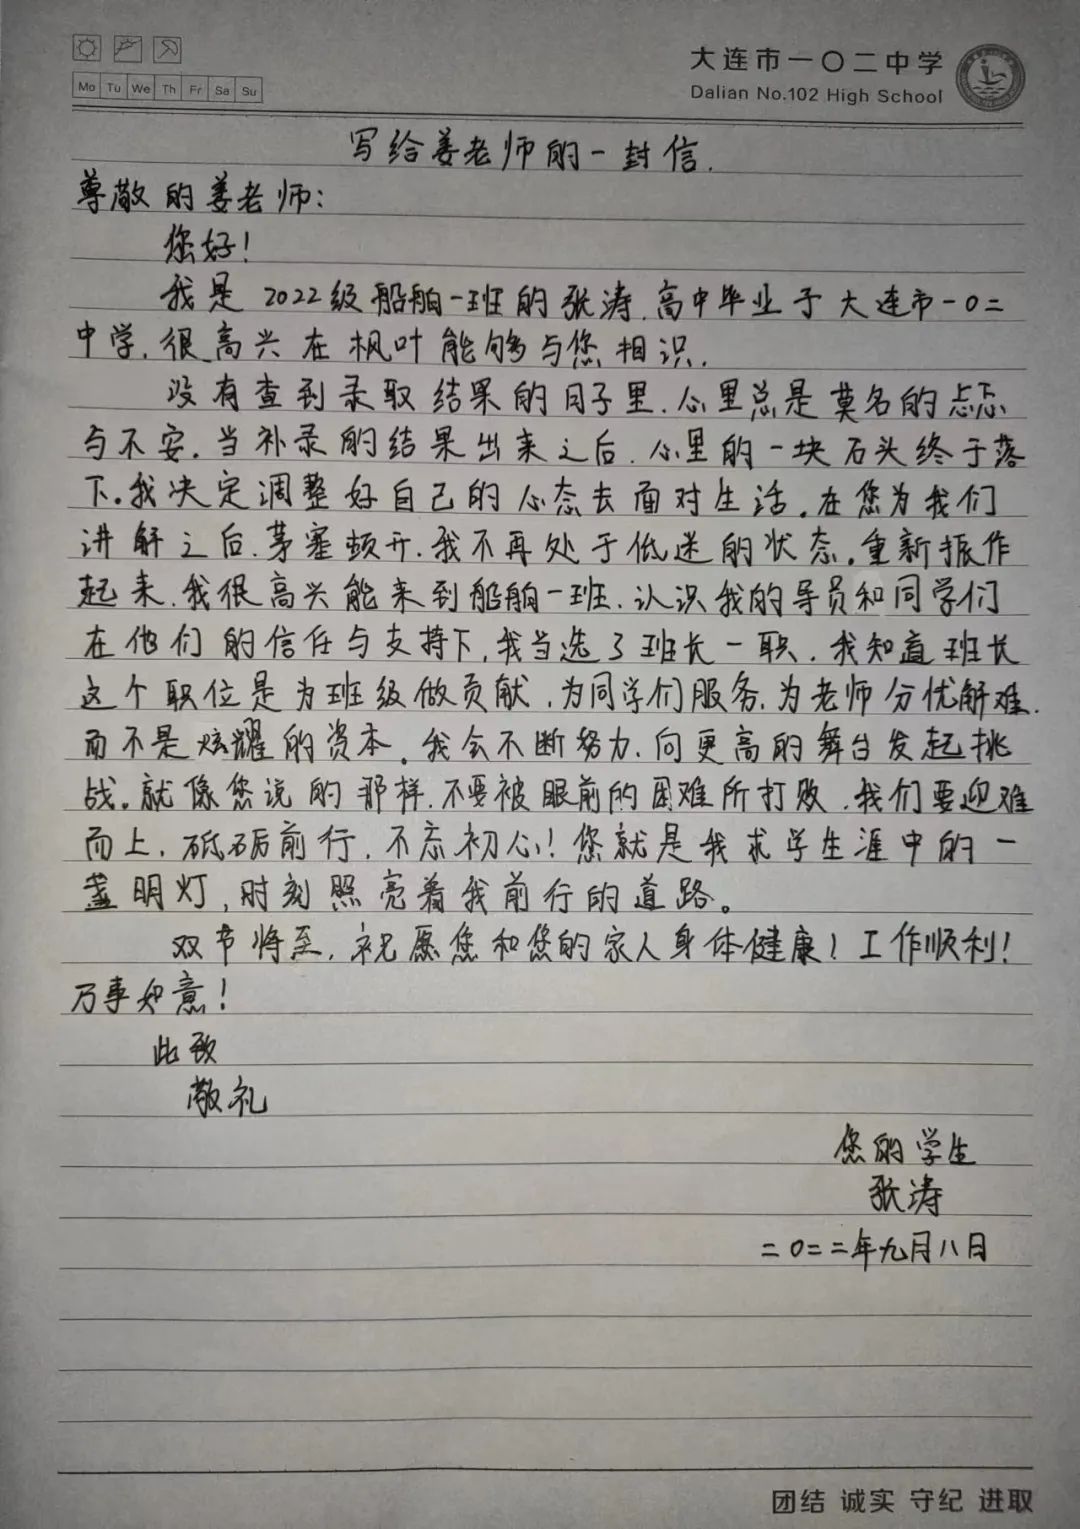 大连市一〇二中学
Dalian No.102 High School
Mo Tu We Th Fr Sa Su
写给姜老师的一封信.
尊敬的姜老师:
您好!
我是2022级船舶一班的张涛.高中毕业于大连市一0二
中学.很高兴在枫叶能够与您相识.
没有查到录取结果的日子里.心里总是莫名的忐忑
与不安.当补录的结果出来之后.心里的一块石头终于落
下。我决定调整好自己的心态去面对生活.在您为我们
讲解之后.茅塞顿开.我不再处于低迷的状态。重新振作
起来.我很高兴能来到船舶一班、认识我的导员和同学们
在他们的信任与支持下,我当选了班长一职.我知道班长
这个职位是为班级做贡献,为同学们服务.为老师分忧解难.
而不是炫耀的资本.我会不断努力.向更高的舞台发起挑
战。就像您说的那样.不要被眼前的困难所打败.我们要迎难
而上.砥砺前行.不忘初心!您就是我求学生涯中的一
盏明灯,时刻照亮着我前行的道路。
双节将至.祝愿您和您的家人身体健康!工作顺利!
万事如意!
此致
敬礼
您的学生
张涛
二0二二年九月八日
团结 诚实 守纪 进取